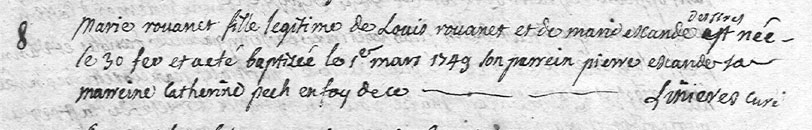 8 Marie rouanet fille legitime de Louis rouanet et de marie escande est née
le 30 fev et aeté baptisée le 1er mars 1749 son parrein pierre escande sa
marreine Catherine pech en foy de ce Linieres curé